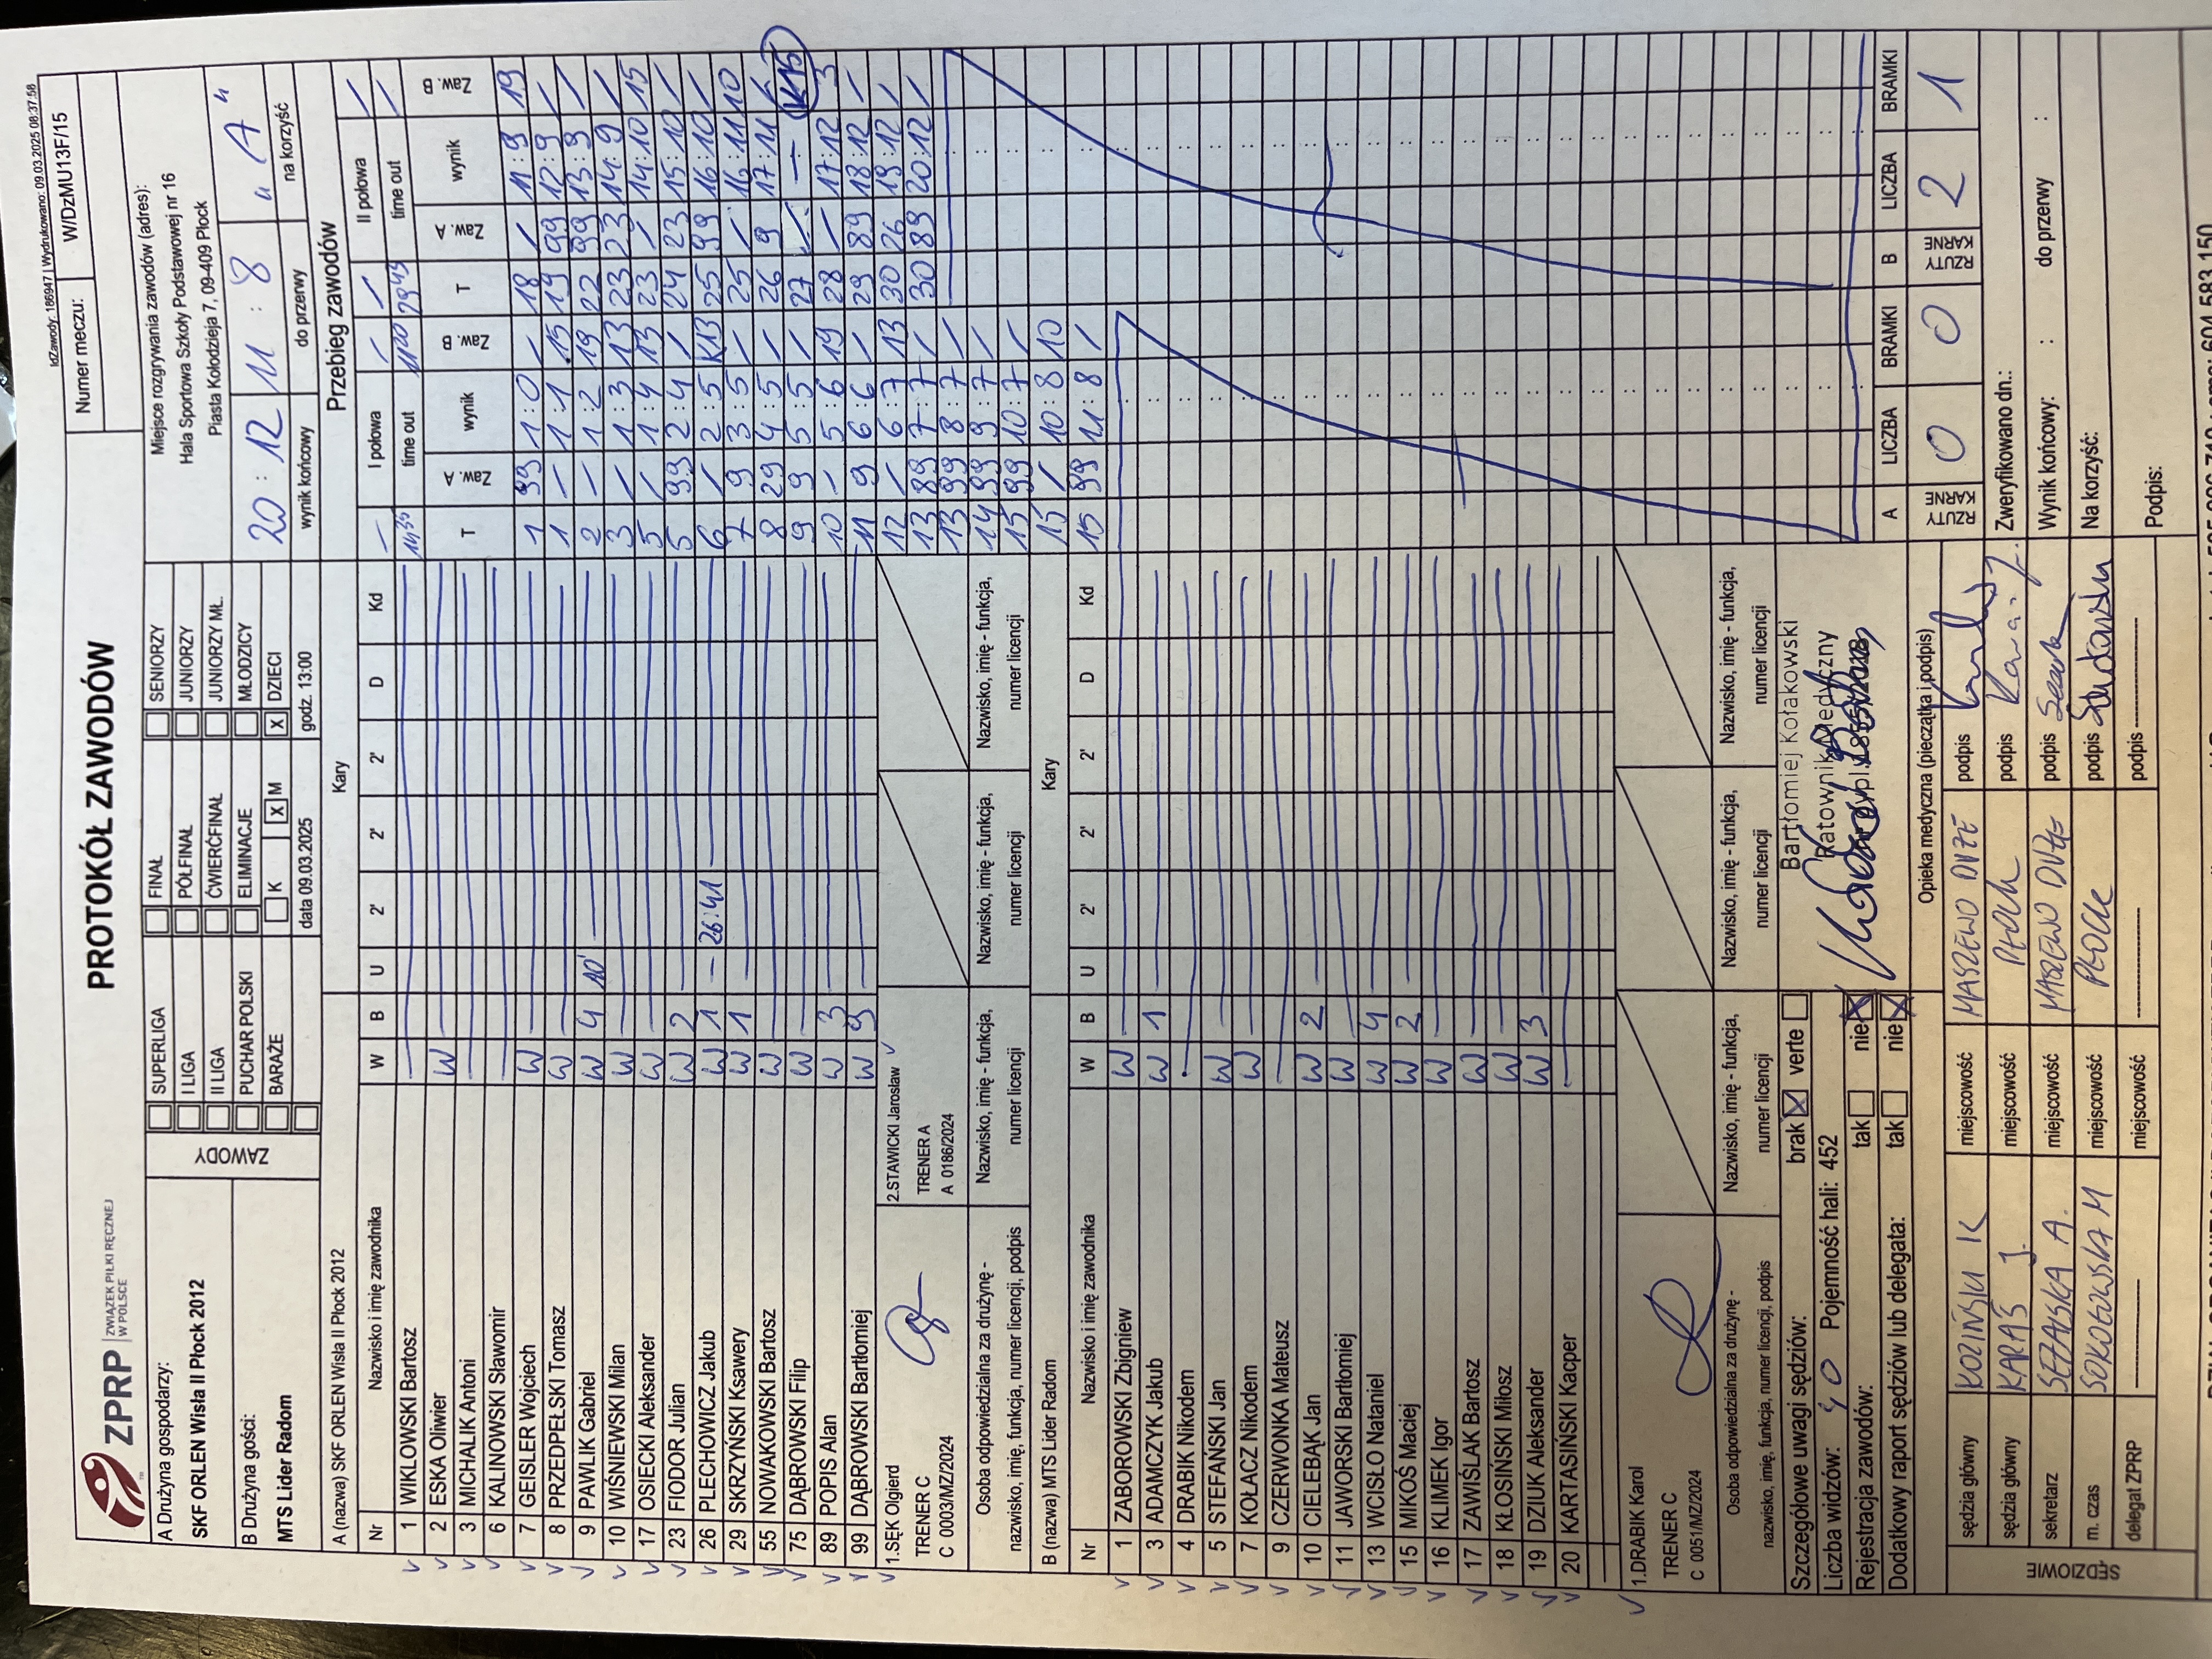 idZawody: 186947 | Wydrukowano: 09.03.2025 08:37:58
ZPRP ZWIĄZEK PIŁKI RĘCZNEJ W POLSCE
PROTOKÓŁ ZAWODÓW
Numer meczu: W/DzMU13F/15
A Drużyna gospodarzy:
SKF ORLEN Wisła II Płock 2012
B Drużyna gości:
MTS Lider Radom
ZAWODY
SUPERLIGA FINAŁ SENIORZY
I LIGA PÓŁFINAŁ JUNIORZY
II LIGA ĆWIERĆFINAŁ JUNIORZY MŁ.
PUCHAR POLSKI ELIMINACJE MŁODZICY
BARAŻE K X M X DZIECI
data 09.03.2025 godz. 13:00
Miejsce rozgrywania zawodów (adres):
Hala Sportowa Szkoły Podstawowej nr 16
Piasta Kołodzieja 7, 09-409 Płock
20 : 12 11 : 8 "A"
wynik końcowy do przerwy na korzyść
A (nazwa) SKF ORLEN Wisła II Płock 2012 Kary
Nr Nazwisko i imię zawodnika W B U 2' 2' 2' D Kd
1 WIKLOWSKI Bartosz
2 ESKA Oliwier W
3 MICHALIK Antoni
6 KALINOWSKI Sławomir
7 GEISLER Wojciech W
8 PRZEDPEŁSKI Tomasz W
9 PAWLIK Gabriel W 4 10'
10 WIŚNIEWSKI Milan W
17 OSIECKI Aleksander W
23 FIODOR Julian W 2
26 PLECHOWICZ Jakub W 1 26:41
29 SKRZYŃSKI Ksawery W 1
55 NOWAKOWSKI Bartosz W
75 DĄBROWSKI Filip W
89 POPIS Alan W 3
99 DĄBROWSKI Bartłomiej W 9
1.SĘK Olgierd 2.STAWICKI Jarosław
TRENER C TRENER A
C 0003/MZ/2024 A 0186/2024
Osoba odpowiedzialna za drużynę - nazwisko, imię, funkcja, numer licencji, podpis
Nazwisko, imię - funkcja, numer licencji
Nazwisko, imię - funkcja, numer licencji
Nazwisko, imię - funkcja, numer licencji
B (nazwa) MTS Lider Radom Kary
Nr Nazwisko i imię zawodnika W B U 2' 2' 2' D Kd
1 ZABOROWSKI Zbigniew W
3 ADAMCZYK Jakub W 1
4 DRABIK Nikodem
5 STEFAŃSKI Jan W
7 KOŁACZ Nikodem W
9 CZERWONKA Mateusz
10 CIELEBĄK Jan W 2
11 JAWORSKI Bartłomiej W
13 WCISŁO Nataniel W 4
15 MIKOŚ Maciej W 2
16 KLIMEK Igor W
17 ZAWIŚLAK Bartosz W
18 KŁOSIŃSKI Miłosz W
19 DZIUK Aleksander W 3
20 KARTASIŃSKI Kacper
1.DRABIK Karol
TRENER C
C 0051/MZ/2024
Osoba odpowiedzialna za drużynę - nazwisko, imię, funkcja, numer licencji, podpis
Nazwisko, imię - funkcja, numer licencji
Nazwisko, imię - funkcja, numer licencji
Nazwisko, imię - funkcja, numer licencji
Szczegółowe uwagi sędziów: brak X verte
Liczba widzów: 40 Pojemność hali: 452
Rejestracja zawodów: tak nie X
Dodatkowy raport sędziów lub delegata: tak nie X
Bartłomiej Kołakowski
Ratownik Medyczny
Opieka medyczna (pieczątka i podpis)
SĘDZIOWIE
sędzia główny KOZIŃSKI K miejscowość MASZEWO DUŻE podpis
sędzia główny KARAŚ J. miejscowość PŁOCK podpis
sekretarz miejscowość MASZEWO DUŻE podpis
m. czas SOKOŁOWSKA M miejscowość PŁOCK podpis
delegat ZPRP miejscowość podpis
Przebieg zawodów
I połowa II połowa
time out 14:35 11:20 time out 29:45
T Zaw. A wynik Zaw. B
1 99 1:0 /
1 / 1:1 15
2 / 1:2 19
3 / 1:3 13
5 / 1:4 13
5 99 2:4 /
6 / 2:5 K13
7 9 3:5 /
8 29 4:5 /
9 9 5:5 /
10 / 5:6 19
11 9 6:6 /
12 / 6:7 13
13 89 7:7 /
13 99 8:7 /
14 99 9:7 /
15 99 10:7 /
15 / 10:8 10
15 99 11:8 /
T Zaw. A wynik Zaw. B
18 / 11:9 19
19 99 12:9 /
22 99 13:9 /
23 23 14:9 /
23 / 14:10 15
24 23 15:10 /
25 99 16:10 /
25 / 16:11 10
26 9 17:11 /
27 / — K15
28 / 17:12 3
29 89 18:12 /
30 26 19:12 /
30 89 20:12 /
A LICZBA BRAMKI B LICZBA BRAMKI
RZUTY KARNE 0 0 RZUTY KARNE 2 1
Zweryfikowano dn.:
Wynik końcowy: : do przerwy :
Na korzyść:
Podpis: